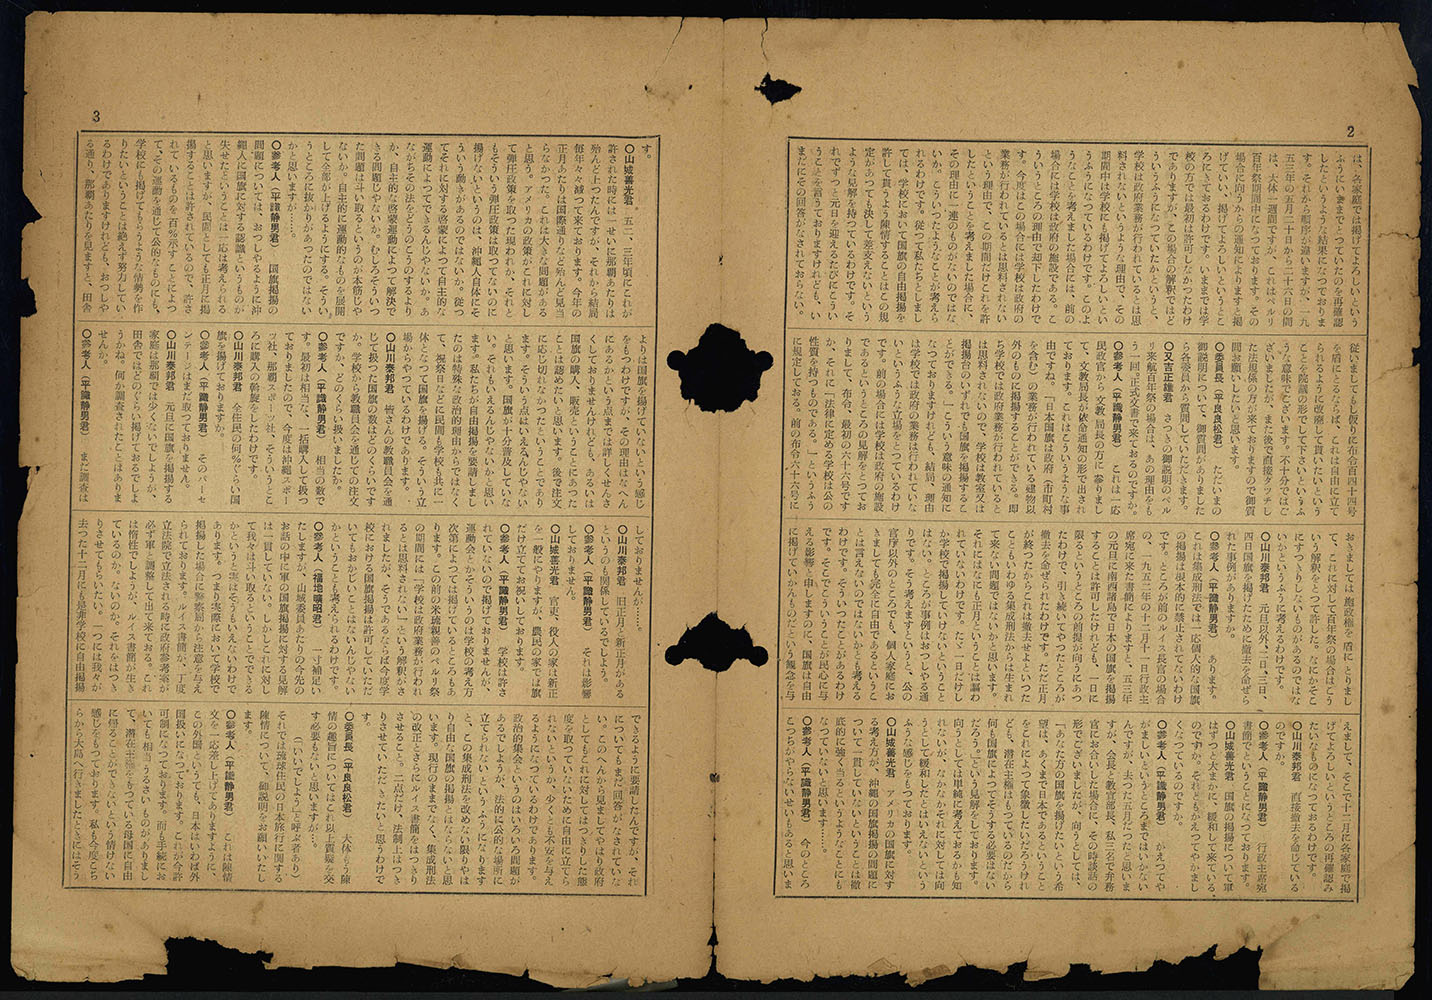 2
は、各家庭では掲げてよろしいという
ふうにいままでとつていたのを再確認
したというような結果になつておりま
す。それから順序が違いますが、一九
五三年の五月二十日から二十六日の間
は、大体一週間ですが、これはペルリ
百年祭期間中になつております。その
場合に向うからの通知によりますと掲
げていい、掲げてよろしいというとこ
ろにきておるわけです。いままでは学
校の方では最初は許可しなかつたわけ
でありますが、この場合の解釈ではど
ういうふうになつていたかというと、
学校は政府業務が行われているとは思
料されないというような理由で、その
期間中は学校にも掲げてよろしいとい
うふうになつているわけです。このよ
うなことから考えました場合は、前の
場合には学校は政府の施設である。こ
ういうところの理由で却下したわけで
す。今度はこの場合は学校は政府の
業務が行われているとは思料されない
という理由で、この期間だけこれを許
したということを考えました場合に、
その理由に一連のものがないのではな
いか。こういつたようなことが考えら
れるわけです。従つて私たちとしまし
ては、学校において国旗の自由掲揚を
許して貰うよう陳情することはこの規
定があつても決して差支えないという
ような見解を持つているわけです。そ
れでずつと元日を迎えるたびにこうい
うことを言うておりますけれども、い
まだにその回答がなされておらない。
従いましてもし仮りに布令百四十四号
を盾にとるならば、これは自由に立て
られるように改廃して貰いたいという
ことを院議の形でして下さいというふ
うな意味でございます。不十分ではご
ざいましたが、また後で直接タッチし
た法規係の方が来ておりますので御質
問お願いしたいと思います。
○委員長(平良良松君) ただいまの
御説明について、御質問がありました
ら各委員から質問していただきます。
○又吉正雄君 さつきの御説明のペル
リ来航百年祭の場合は、あの理由をも
う一回、正式文書で来ておるのですか。
○参考人(平識静男君) これは一応
民政官から文教局長の方に参りまし
て、文教局長が依命通知の形で出され
ております。これはこういうような事
由ですね。「日本国旗は政府(市町村
を含む)の業務が行われている建物以
外のものに掲揚することができる。即
ち学校では政府の業務が行われていると
は思料されないので、学校は教室又は
掲揚台のいずれでも国旗を掲揚するこ
とができる。」こういう意味の通知に
なつておりますけれども、結局、理由
は学校では政府の業務は行われていな
いというような立場をとつているわけ
です。前の場合には学校は政府の施設
であるというところの見解をとつてお
りまして、布令、最初の六十六号です
か、それに「法律に定める学校は公の
性質を持つものである。」というふう
に規定しておる。前の令六十六号に
おきましては施政権を盾にとりまし
て、これに対して百年祭の場合はこう
いう解釈をとつて許した。なにかそこ
にすつきりしないものがあるのではな
いかというふうに考えるわけです。
○山川泰邦君 元旦以外、二日、三日、
四日国旗を掲げたために撤去を命ぜら
れた事例がありますか。
○参考人(平識静男君) あります。
これは集成刑法では一応個人的な国旗
の掲揚は根本的に禁止されていないわけ
です。ところが前のルイス長官の場合
の、一九五二年の十二月二十一日行政主
席宛に来た書簡によりますと、五三年
の元旦に南西諸島で日本の国旗を掲揚
することは許可したけれども、一日に
限るというところの前提が向うにあつ
たわけで、引き続いてやつたところが
撤去を命ぜられたわけです。ただ正月
が終つたからこれは撤去せよというこ
ともいわゆる集成刑法からは生まれ
て来ない問題ではないかと思います。
それにはなにも正月ということは謳わ
れていないわけです。たゞ一日だけし
か学校で掲揚していけないということ
はない。ところが事例はおつしやる通
りです。そう考えますというと、公の
官庁以外のところでも、個人家庭にお
きましても完全に自由であるというこ
とは言えないのではないかとも考える
わけです。そういつたことがあるわけ
です。そこでこういうことが民心に与
える影響と申しますのに、国旗は自由
に掲げていかんものだという観念を与
えまして、そこで十二月に各家庭で掲
げてよろしいというところの再確認み
たいなものになつておるわけです。
○山川泰邦君 直接撤去を命じている
のですか。
○参考人(平識静男君) 行政主席宛
書簡でということになつております。
○山城善光君 国旗の掲揚について軍
はずつと大まかに、緩和して来ている
のですか。それともかえてやかまし
くなつているのですか。
○参考人(平識静男君) かえてやか
ましいというところまではいかない
んですが、去つた五月だつたと思いま
すが、会長と教官部長、私三名で弁務
官にお会いした場合に、その時談話の
形でございましたが、向うとしては、
「あなた方国旗を掲げたいという希
望は、あくまで日本であるということ
をこれによつて象徴したいだろうけれ
ども、潜在主権はもつているのだから
何も国旗によつてそうする必要はない
だろう。」という見解をしております。
向うとしては単純に考えておるかも知
れないが、なかなかそれに対しては向
うとして緩和したとはいえないという
ふうな感じをもつております。
○山城善光君 アメリカの国旗に対す
る考え方が、沖縄の国旗掲揚の問題に
ついて一貫していないということは徹
底的に強く当るというようなことにも
なつていないと思いますが……。
○参考人(平識静男君) 今のところ
こつちがやらないせいもあると思いま
3
す。
○山城善光君 五二、三年頃にこれが
許された時には一せいに那覇あたりは
殆んど上つたんですが、それから結局
毎年々々減つて来ております。今年の
正月あたりは国際通りなど殆んど見当
らなかつた。これは大きな問題がある
と思う。アメリカの政策がこれに対し
て弾圧政策を取つた現われか、それと
もそういう弾圧政策は取つてないのに
揚げないというのは、沖縄人自体にそ
ういう動きがあるのでないか。従つ
てそれに対する啓蒙によつて自主的な
運動によつてできるんじやないか。あ
ながちその法をどうこうのするより
か、自主的な啓蒙運動によつて解決で
きる問題じやないか。むしろそういつ
た問題は斗い取るというのが本筋じや
ないか。自主的に運動的なものを展開
して全部が上げるようにする。そうい
うところに抜かりがあつたのではない
かと思いますが……。
○参考人(平識静男君) 国旗掲揚の
問題については、おつしやるように沖
縄人に国旗に対する認識というものが
失せたということは一応は考えられる
と思いますが、民間としても正月に掲
揚することは許されているので、許さ
れているものを百%示すことによつ
て、その運動を通じて公的なものにも、
学校にも掲げてもらうような情勢を作
りたいということは絶えず努力してい
るわけでありますけれども、おつしや
る通り、那覇あたりを見ますと、田舎
よりは国旗を揚げていないという感じ
をもつわけですが、その理由はなへん
にあるかという点までは詳しくせんさ
くしておりませんけれども、あるいは
国旗の購入、販売ということにあつたこ
とは認めないと思います。後で注文
に応じ切れなかつたということであり
ます。そういう点はいえるんじやない
と思います。国旗が十分普及していな
い。それもいえるんじやないかと思い
ます。私たちが自由掲揚を要請しまし
たのは特殊な政治的理由からではなく
て、祝祭日などに民間も学校も共に一
体となつて国旗を揚げる。そういう立
場からやつているわけであります。
○山川泰邦君 皆さんの教職員会を通
じて扱つた国旗の数はどのくらいです
か。学校から教職員会を通じての注文
ですか、どのくらい扱いましたか。
○参考人(平識静男君) 相当の数で
す。最初は相当な、一括購入して扱つ
ておりましたので、今度は沖縄スポー
ツ社、那覇スポーツ社、そういうとこ
ろに購入の斡旋をしたわけです。
○山川泰邦君 全住民の何%ぐらい国
旗を揚げておりますか。
○参考人(平識静男君) そのパーセ
ンテージはまだ取つておりません。
○山川泰邦君 元旦に国旗を掲揚する
家庭は那覇では少くないでしようが、
田舎ではどのぐらい揚げておるでしよ
うかね。何か調査されたことはありま
せんか。
○参考人(平識静男君) まだ調査は
しておりませんが……。
○山川泰邦君 旧正月と新正月がある
というのも関係しているでしよう。
○参考人(平識静男君) それは影響
しておりません。
○山城善光君 官吏、役人の家は新正
を一般にやりますが、農民の家では旗
だけ立ててお祝いしております。
○参考人(平識静男君) 学校は許さ
れていないので掲げておりませんが、
運動会とかそういうのは学校の考え方
次第によつては掲げているところもあ
ります。この前の米琉親善のペルリ祭
の期間には「学校は政府業務が行われ
るとは思料されない」という解釈がさ
れましたが、そうであるならば今度学
校における国旗掲揚は許可していただ
いてもおかしいことはないんじやない
かということも考えられるわけです。
○参考人(福地曠昭君) 一寸補足い
たしますが、山城委員あたりの今の先
お話の中に軍の国旗掲揚に対する見解
は一貫していない。しかしこれに対し
て我々は斗い取るということでできる
かというと実はそうもいえないわけで
あります。つまり実際において学校で
掲揚した場合に警察局から注意を与え
られております。ルイス書簡が、丁度
立法院で立法される時に政府参考案が
必ず軍と調整して出て来ておる。これ
は惰性でしようが、ルイス書簡が生き
ているのか、ないのか。それをはつき
りさせてもらいたい。一つには我々が
去つた十二月にも是非学校に自由掲揚
できるように要請したんですが、それ
についてもまだ回答がなされていな
い。このへんから見ましてやはり政府
としてもこれに対してはつきりした態
度を取つていないために自由に立てら
れないというか、少くとも不安を与え
るようになつているわけであります。
政治的集会というのはいろいろ問題が
あるでしようが、法的に公的な場所に
立てられない、というふうになります
と、この集成刑法を改めない限りやは
り自由な国旗の掲揚とはならないと思
います。現行のままでなく、集成刑法
の改正とさらにルイス書簡をはつきり
させること。二点だけ、法制上はつき
りさせていただきたいと思うわけで
す。
○委員長(平良良松君) 大体もう陳
情の趣旨についてはこれ以上質疑を交
す必要もないと思いますが…。
(「いいでしよう」と呼ぶ者あり)
それでは琉球住民の日本旅行に関する
陳情について、御説明をお願いいたし
ます。
○参考人(平識静男君) これは陳情
文を一応差し上げてありますように、
この外国といつても、日本はいわば外
国扱いになつております。これが今許
可制になつております。而も手続にお
いても相当うるさいものがありまし
て、潜在主権をもつている母国に自由
に帰ることができないという情けない
感じをもつております。私も今度こち
らから大島へ行きましたときにはそう